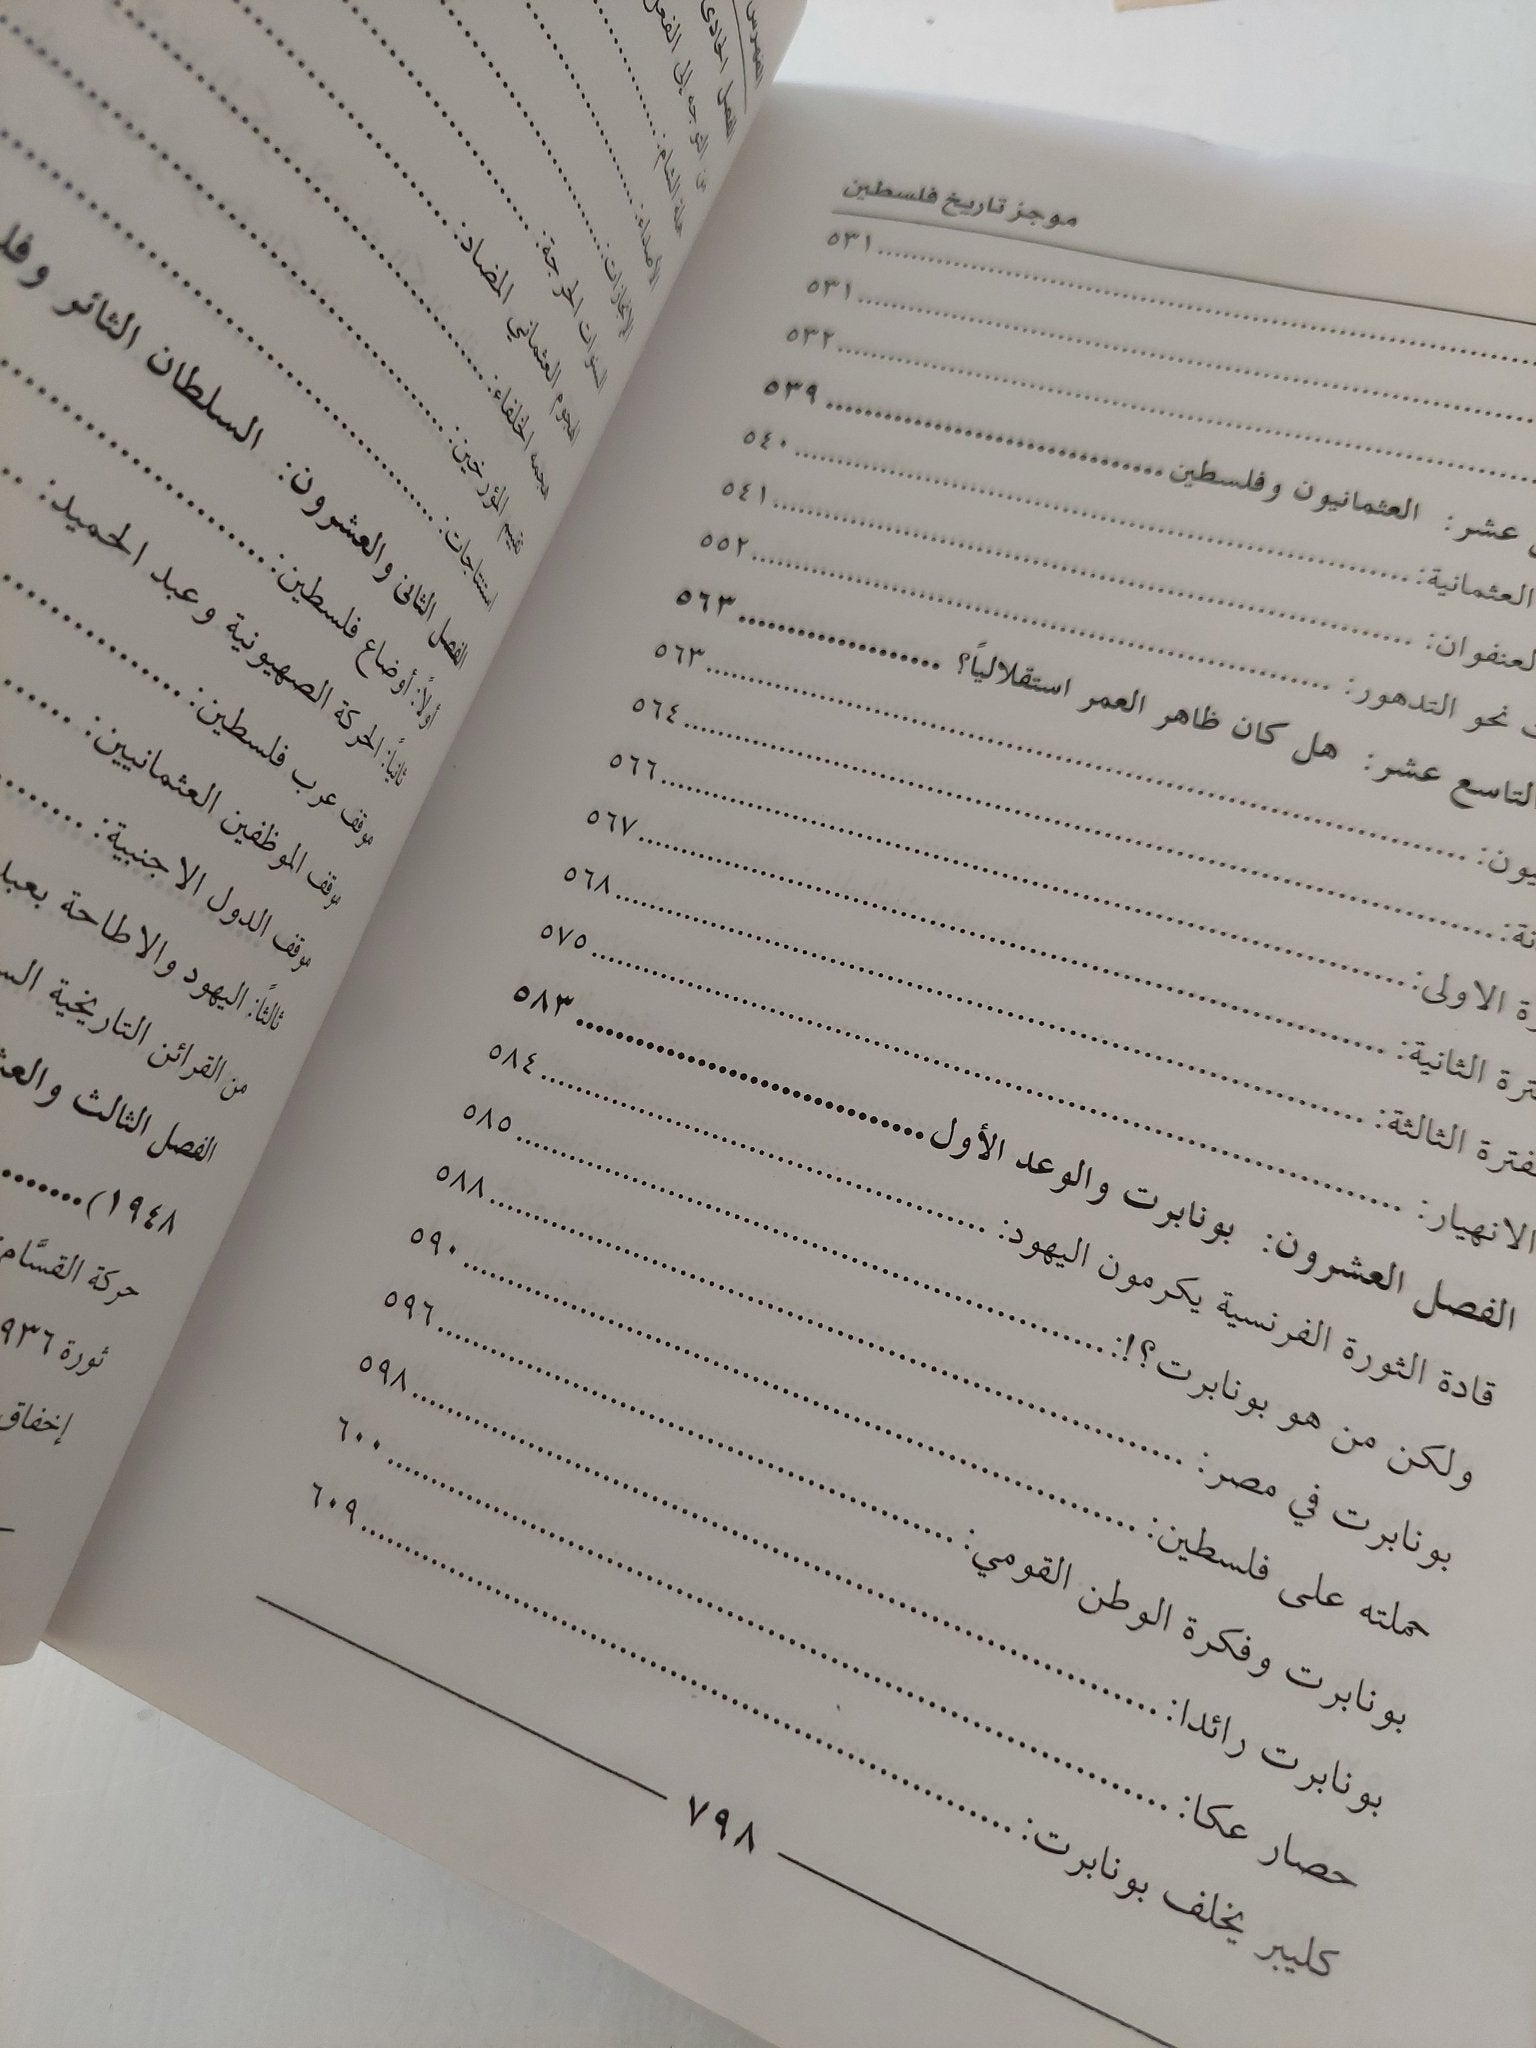 موجز تاريخ فلسطين
٥٣١
٥٣١
٥٣٢
عشر: العثمانيون وفلسطين ٥٣٩
العثمانية: ٥٤٠
العنفوان: ٥٤١
نحو التدهور: ٥٥٢
التاسع عشر: هل كان ظاهر العمر استقلالياً؟ ٥٦٣
٥٦٣
٥٦٤
الاولى: ٥٦٦
الثانية: ٥٦٧
الثالثة: ٥٦٨
الانهيار: ٥٧٥
الفصل العشرون: بونابرت والوعد الأول ٥٨٣
قادة الثورة الفرنسية يكرمون اليهود: ٥٨٤
ولكن من هو بونابرت؟!: ٥٨٥
بونابرت في مصر: ٥٨٨
حملته على فلسطين: ٥٩٠
بونابرت وفكرة الوطن القومي: ٥٩٦
بونابرت رائدا: ٥٩٨
حصار عكا: ٦٠٠
كليبر يخلف بونابرت: ٦٠٩
٧٩٨
الفهرس
الفصل الحادي
التوجه إلى الفعل
حملة الشام:
الأصداء:
الإنجازات:
السنوات الحرجة:
الهجوم العثماني المضاد:
الخلفاء:
تقييم المؤرخين:
استنتاجات:
الفصل الثاني والعشرون: السلطان الثائر
أولاً: أوضاع فلسطين:
ثانياً: الحركة الصهيونية وعبد الحميد:
موقف عرب فلسطين:
موقف الموظفين العثمانيين:
موقف الدول الاجنبية:
ثالثاً: اليهود والاطاحة
من القرائن التاريخية
الفصل الثالث
١٩٤٨)
حركة القسَّام
ثورة
إخفاق